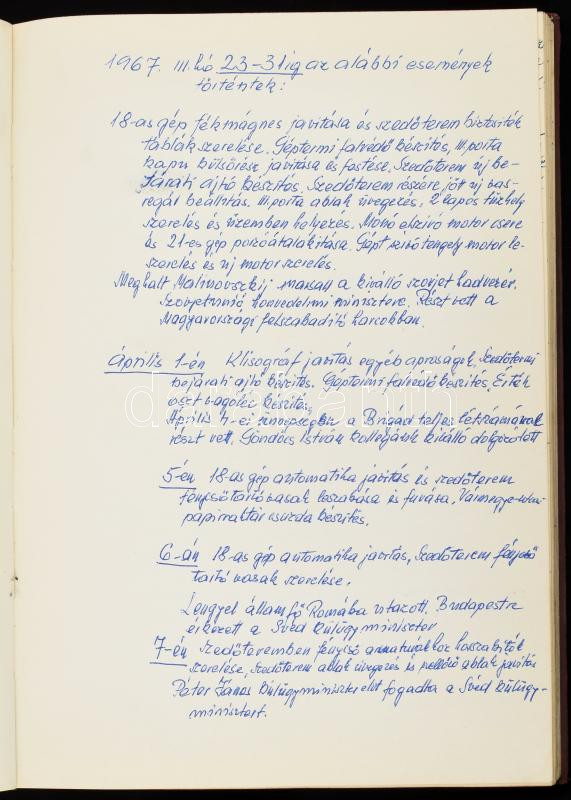 1967. III. hó 23-31ig az alábbi események
történtek:
18-as gép fékmágnes javitása és szedőterem biztositék
táblák szerelése. Géptermi falvédő készités, III. porta
kapu külsőrész javitása és festése. Szedőterem új be-
járati ajtó készités. Szedőterem részére jött új vas-
regál beállitás. III. porta ablak üvegezés, 2 lapos tűzhely
szerelés és üzemben helyezés. Monó elszivó motor csere
és 21-es gép porzóátalakitása. Gépt. szivó tengely motor le-
szerelés és új motor szerelés.
Meghalt Malinovszkij marsall a kiválló szovjet hadvezér.
Szovjetunió honvédelmi minisztere. Részt vett a
Magyarországi felszabaditó harcokban.
Április 1-én Klisográf javitás egyéb apróságok, Szedőtermi
bejárati ajtó készités. Géptermi falvédő készités. Érték
készités.
Április 4-ei ünnepségben a Brigád teljes létszámával
részt vett. Göndöcs István kollégánk kiválló dolgozó lett
5-én 18-as gép automatika javitás és szedőterem
fénycsőtartó vasak leszabása és furása. Vármegye utcai
papirraktár csuzda készités.
6-án 18-as gép automatika javitás, Szedőterem fénycső
tartó vasak szerelése.
Lengyel államfő Romába utazott. Budapestre
érkezett a Svéd külügyminiszter
7-én Szedőteremben fénycső armatúrákhoz hosszabitók
szerelése, Szedőterem ablak üvegezés és ablak javitás
Péter János külügyminiszter elvt fogadta a Svéd külügy-
minisztert.
darabanth